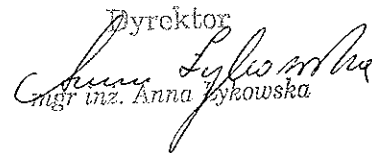 Dyrektor
Anna Łykowska
mgr inż. Anna Łykowska